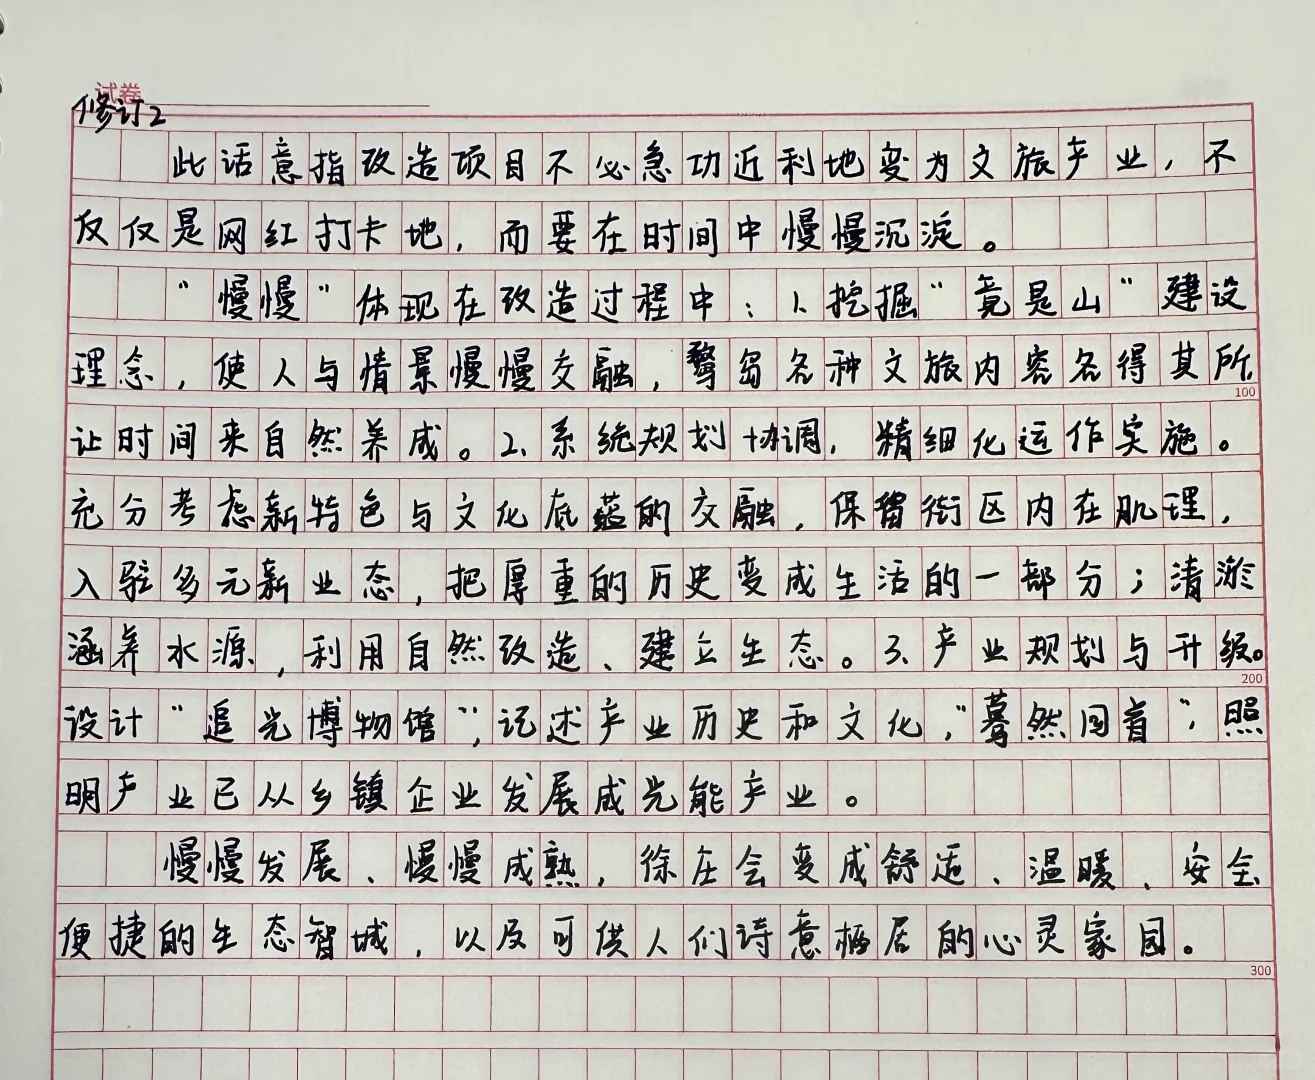 试卷
修订2
此话意指改造项目不必急功近利地变为文旅产业，不
仅仅是网红打卡地，而要在时间中慢慢沉淀。
“慢慢”体现在改造过程中：1、挖掘“竟是山”建设
理念，使人与情景慢慢交融，鹜岛各种文旅内容各得其所，
100
让时间来自然养成。2、系统规划协调，精细化运作实施。
充分考虑新特色与文化底蕴的交融，保留街区内在肌理，
入驻多元新业态，把厚重的历史变成生活的一部分；清淤
涵养水源，利用自然改造、建立生态。3、产业规划与升级。
200
设计“追光博物馆”，记述产业历史和文化，“蓦然回首”，照
明产业已从乡镇企业发展成光能产业。
慢慢发展、慢慢成熟，徐庄会变成舒适、温暖、安全
便捷的生态智城，以及可供人们诗意栖居的心灵家园。
300